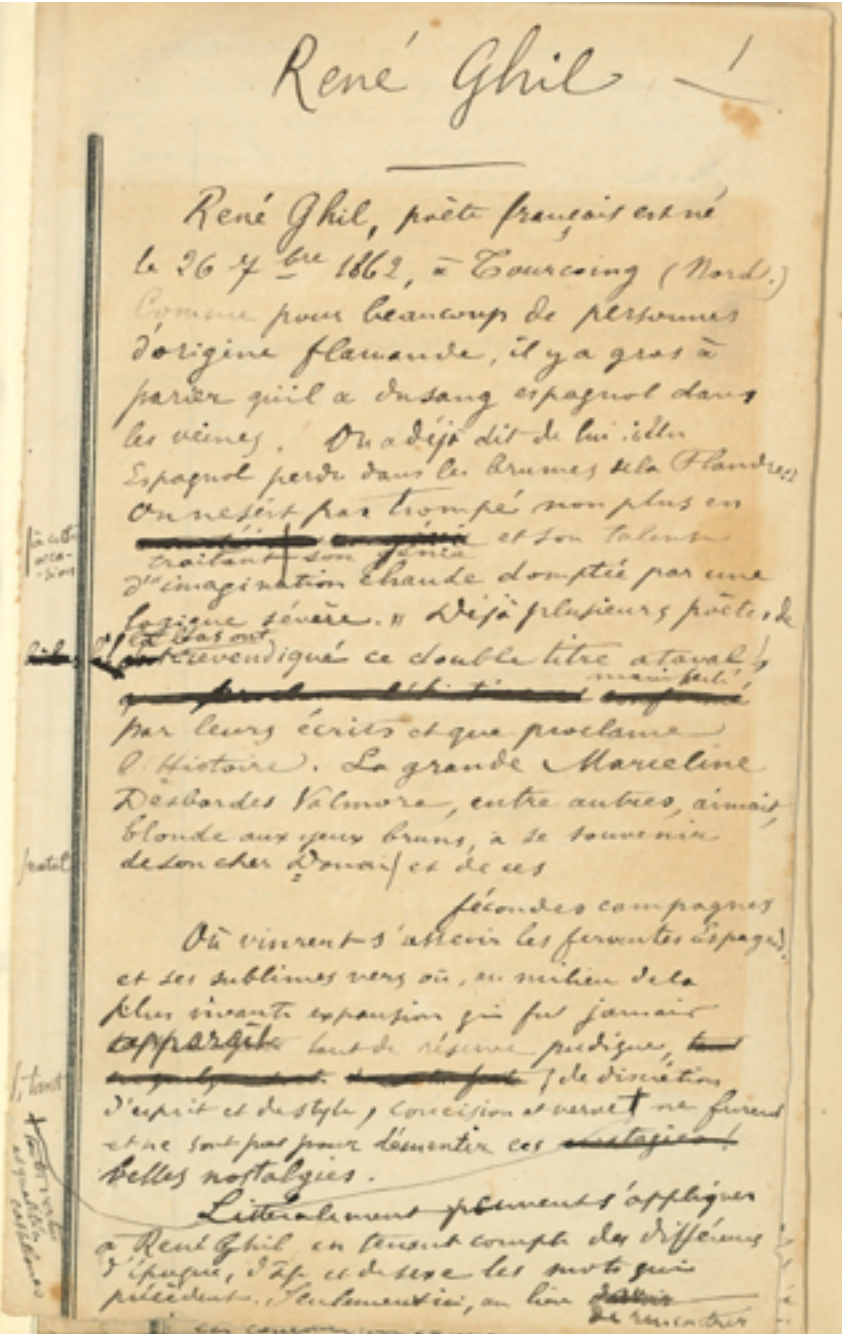 René Ghil
René Ghil, poète français est né
le 26 7bre 1862, à Tourcoing (Nord.)
Comme pour beaucoup de personnes
d'origine flamande, il y a gros à
parier qu'il a du sang espagnol dans
les veines. On a déjà dit de lui : « Un
Espagnol perdu dans les brumes de la Flandre. »
On ne s'est pas trompé non plus en
et son talent
traitant son génie
d'« imagination chaude domptée par une
logique sévère. » Déjà plusieurs poètes de
là-bas ont
revendiqué ce double titre ataval
manifesté
par leurs écrits et que proclame
l'Histoire. La grande Marceline
Desbordes Valmore, entre autres, aimait,
blonde aux yeux bruns, à se souvenir
natal
de son cher Douai et de ces
fécondes campagnes
Où vinrent s'asseoir les ferventes Espagnes,
et ses sublimes vers où, au milieu de la
plus vivante expansion qui fut jamais
apparaît tant de réserve pudique,
de discrétion
d'esprit et de style, concision et verve ne furent
et ne sont pas pour démentir ces nostalgies
belles nostalgies.
Littéralement peuvent s'appliquer
à René Ghil en tenant compte des différences
d'époque, d'âge et de sexe les mots qui
précèdent. Seulement ici, au lieu
de rencontrer